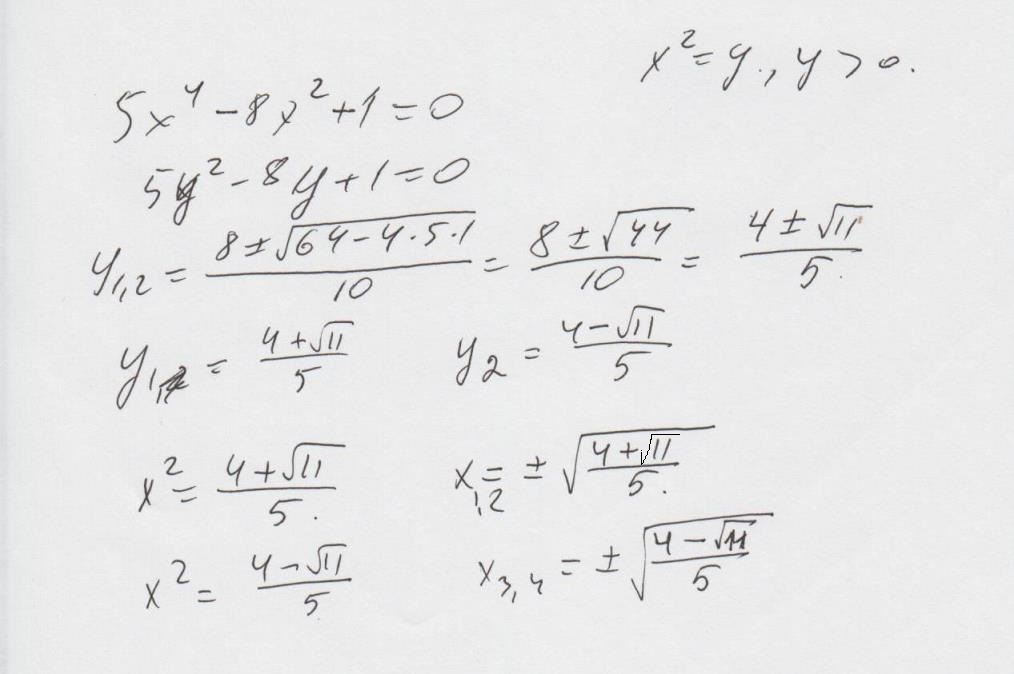 x² = y, y > 0.
5x⁴ - 8x² + 1 = 0
5y² - 8y + 1 = 0
y₁,₂ = (8 ± √(64 - 4·5·1))/10 = (8 ± √44)/10 = (4 ± √11)/5.
y₁ = (4 + √11)/5 y₂ = (4 - √11)/5
x² = (4 + √11)/5. x₁,₂ = ± √((4 + √11)/5.)
x² = (4 - √11)/5 x₃,₄ = ± √((4 - √11)/5)